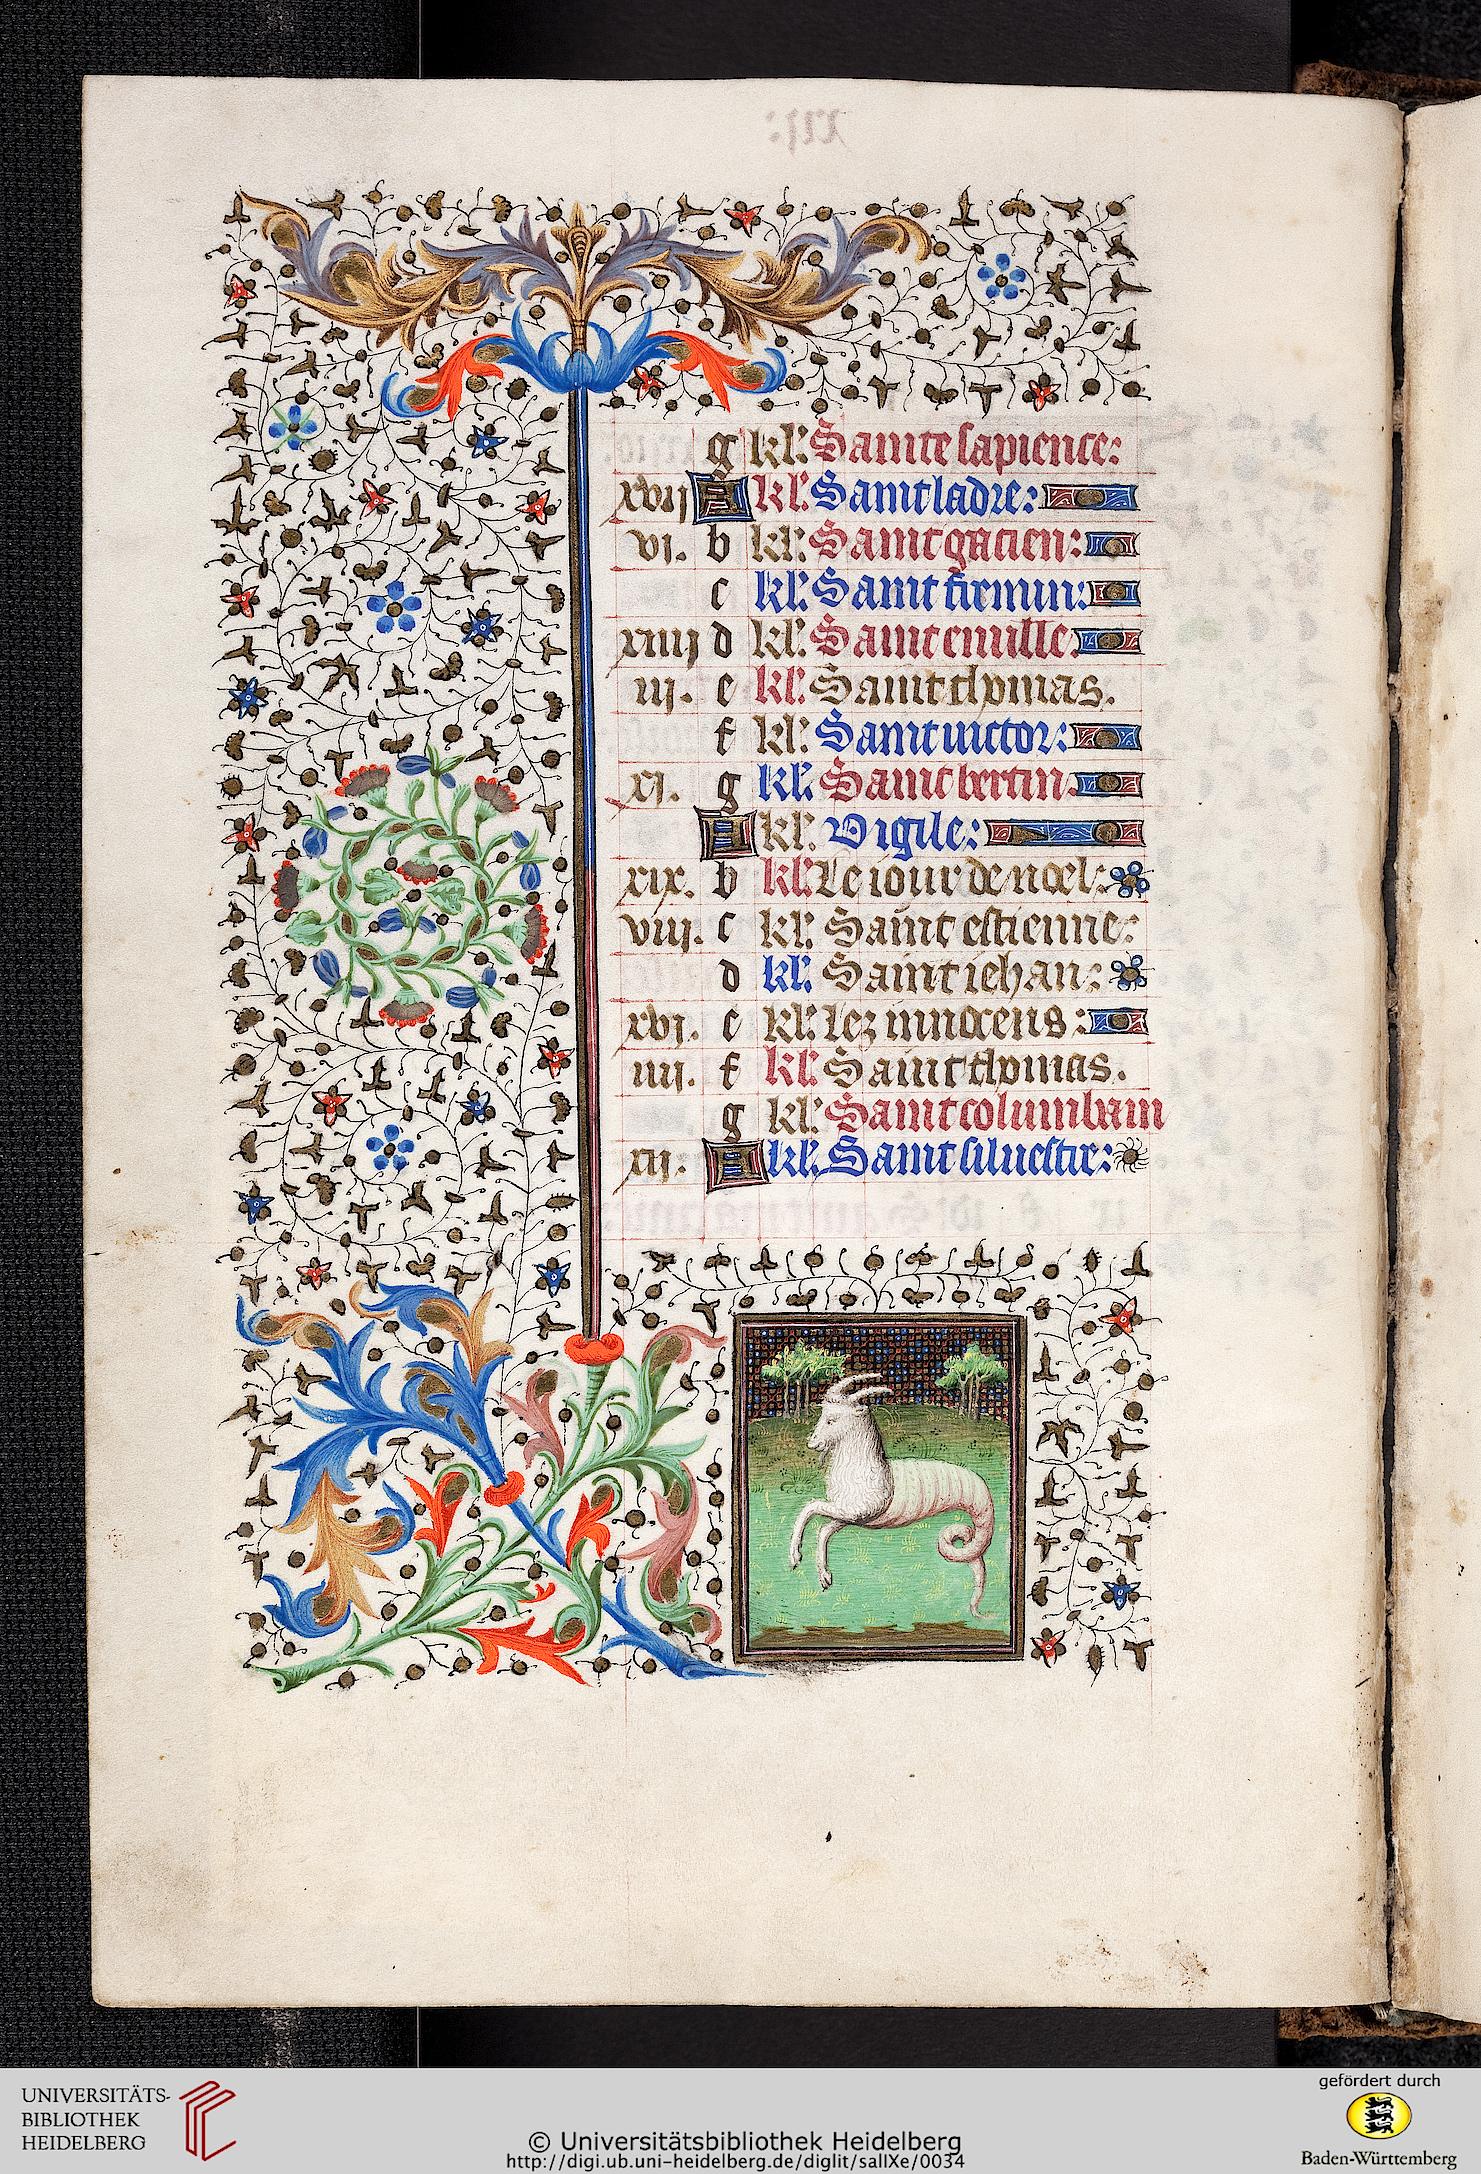 g kl'. Sainte sapience:
xvij A kl'. Saint ladre:
vi. b kl'. Saint gacien:
c kl'. Saint firmin:
xiiij d kl'. Saint emille:
iij. e kl'. Saint thomas.
f kl'. Saint uictor:
xj. g kl'. Saint bertin
A kl'. Vigile:
xix. b kl'. Le iour de noel:
viij. c kl'. Saint estienne:
d kl'. Saint iehan:
xvj. e kl'. Lez innocens:
iiij. f kl'. Saint thomas.
g kl'. Saint columbain
xij. A kl'. Saint siluestre:
UNIVERSITÄTS-
BIBLIOTHEK
HEIDELBERG
© Universitätsbibliothek Heidelberg
http://digi.ub.uni-heidelberg.de/diglit/salIXe/0034
gefördert durch
Baden-Württemberg